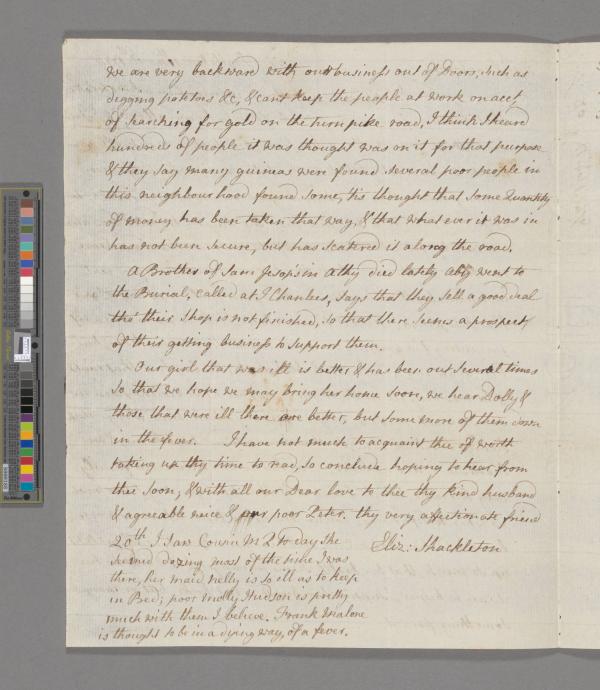 we are very backward with our business out of Doors, such as
digging potatoes &c, & cant keep the people at work on acct
of searching for gold on the turnpike road, I think I heard
hundreds of people it was thought was on it for that purpose
& they say many guineas were found several poor people in
this neighbourhood found some, tis thought that some Quantity
of money has been taken that way, & that what ever it was in
has not been secure, but has scatered it along the road.
A Brother of Sam: Jesops in Athy died lately went to
the Burial, called at J Chanlees, says that they sell a good deal
tho' their shop is not finished, so that there seems a prospect
of their getting business to support them.
Our girl that was ill is better & has been out several times
so that we hope we may bring her home soon, we hear Dolly &
those that were ill there are better, but some more of them down
in the fever. I have not much to acquaint thee of worth
taking up thy time to read, so conclude hoping to hear from
thee soon, & with all our Dear love to thee thy kind husband
& agreeable neice & poor Peter. thy very affectionate friend
Eliz: Shackleton
20th I saw Cousin M to day she
seemed dozing most of the time I was
there, her maid nelly is so ill as to keep
in Bed; poor molly Hudson is pretty
much with them I believe. Frank Malone
is thought to be in a dying way, of a fever.